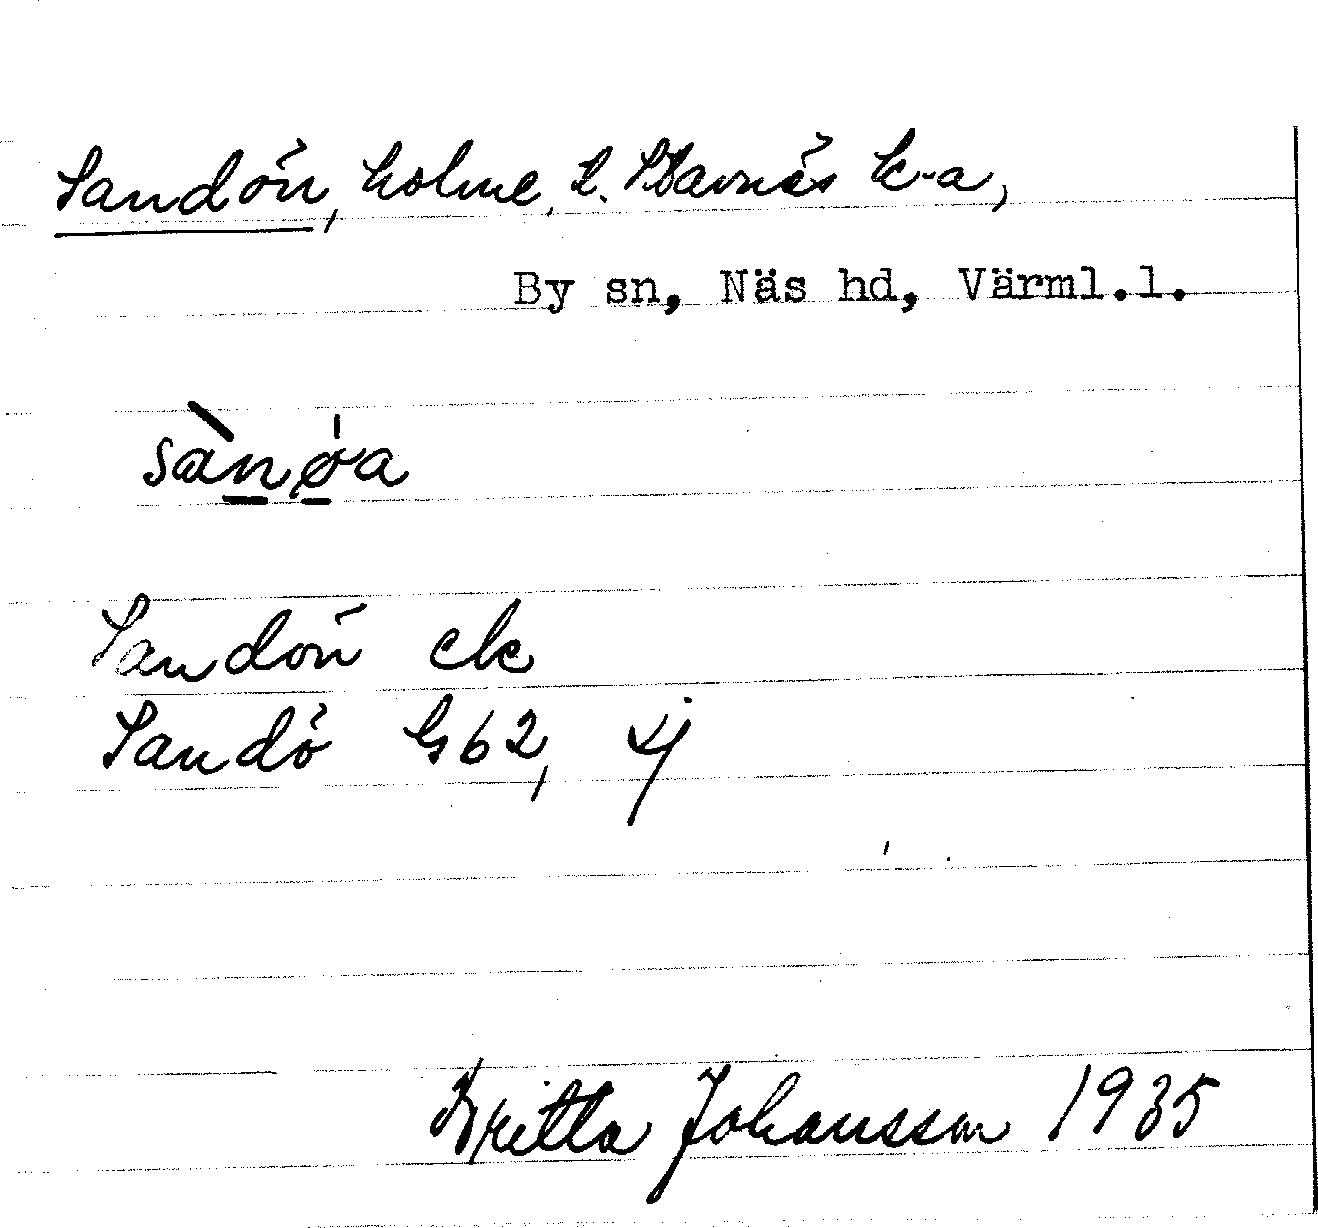 Sandön, holme, t. Stavnäs k-a,
By sn, Näs hd, Värml.l.
sànǿa
Sandön ek
Sandö G62, j
Britta Johansson 1935